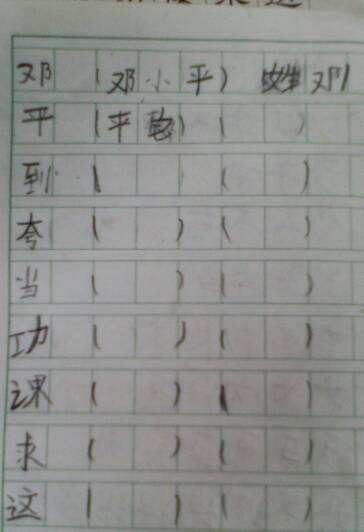 邓 (邓小平) 姓邓
平 (平 ) ( )
到 ( ( )
夸 ( ) ( )
当 ( ) ( )
功 ( ) ( )
课 ( ) ( )
求 ( ) ( )
这 ( ) ( )